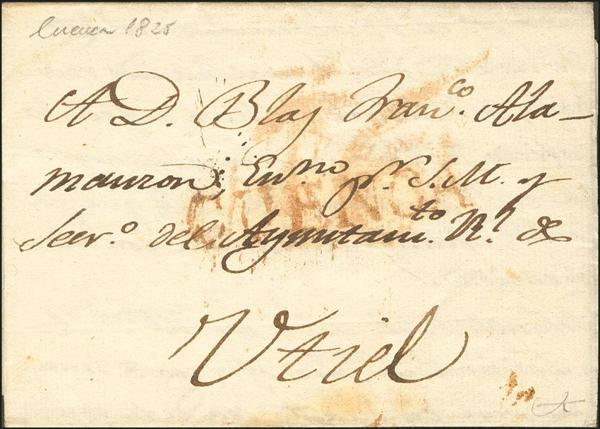 Cuenca 1825
A D. Blas Fran.co Ala-
manzon; Esn.no pr. S. M. y
CUENCA
Secr.o del Ayuntam.to R.l de
Utiel